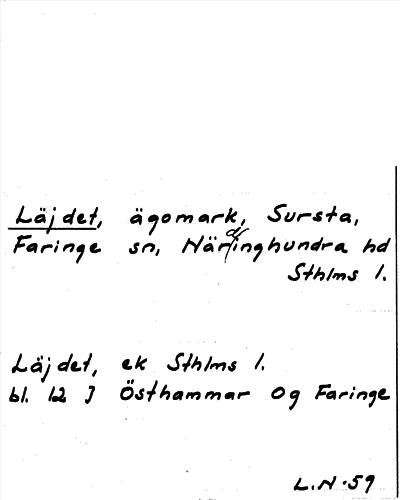 Läjdet, ägomark, Sursta,
Faringe sn, Närdinghundra hd
Sthlms l.
Läjdet, ek Sthlms l.
bl. 12 J Östhammar og Faringe
L.N. 59